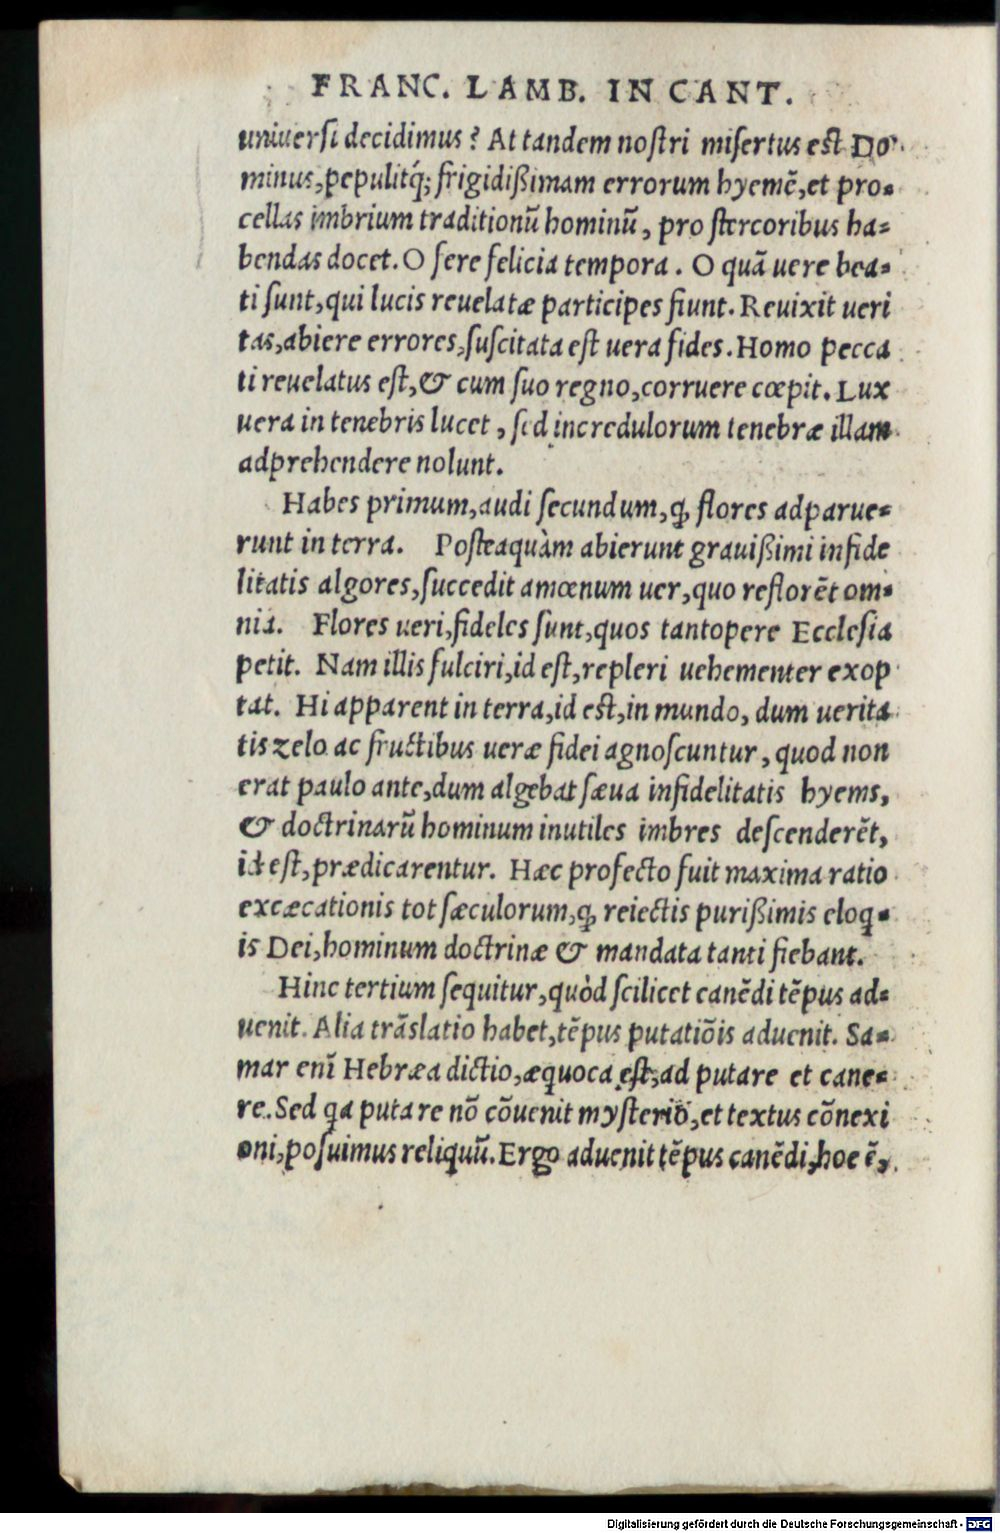 FRANC. LAMB. IN CANT.
uniuersi decidimus? At tandem nostri misertus est Do-
minus, pepulitq́; frigidißimam errorum hyemẽ, et pro-
cellas imbrium traditionũ hominũ, pro stercoribus ha-
bendas docet. O fere felicia tempora. O quã uere bea-
ti sunt, qui lucis reuelatæ participes fiunt. Reuixit ueri
tas, abiere errores, suscitata est uera fides. Homo pecca
ti reuelatus est, & cum suo regno, corruere cœpit. Lux
uera in tenebris lucet, sed incredulorum tenebræ illam
adprehendere nolunt.
Habes primum, audi secundum, ꝙ flores adparue-
runt in terra. Posteaquàm abierunt grauißimi infide
litatis algores, succedit amœnum uer, quo reflorẽt om-
nia. Flores ueri, fideles sunt, quos tantopere Ecclesia
petit. Nam illis fulciri, id est, repleri uehementer exop
tat. Hi apparent in terra, id est, in mundo, dum uerita
tis zelo ac fructibus ueræ fidei agnoscuntur, quod non
erat paulo ante, dum algebat sæua infidelitatis hyems,
& doctrinarũ hominum inutiles imbres descenderẽt,
id est, prædicarentur. Hæc profecto fuit maxima ratio
excæcationis tot sæculorum, ꝙ reiectis purißimis eloq-
is Dei, hominum doctrinæ & mandata tanti fiebant.
Hinc tertium sequitur, quòd scilicet canẽdi tẽpus ad-
uenit. Alia trãslatio habet, tẽpus putatiõis aduenit. Sa-
mar enĩ Hebræa dictio, æquoca est, ad putare et cane-
re. Sed qa putare nõ cõuenit mysterio, et textus cõnexi
oni, posuimus reliquũ. Ergo aduenit tẽpus canẽdi, hoc ẽ,
Digitalisierung gefördert durch die Deutsche Forschungsgemeinschaft - DFG